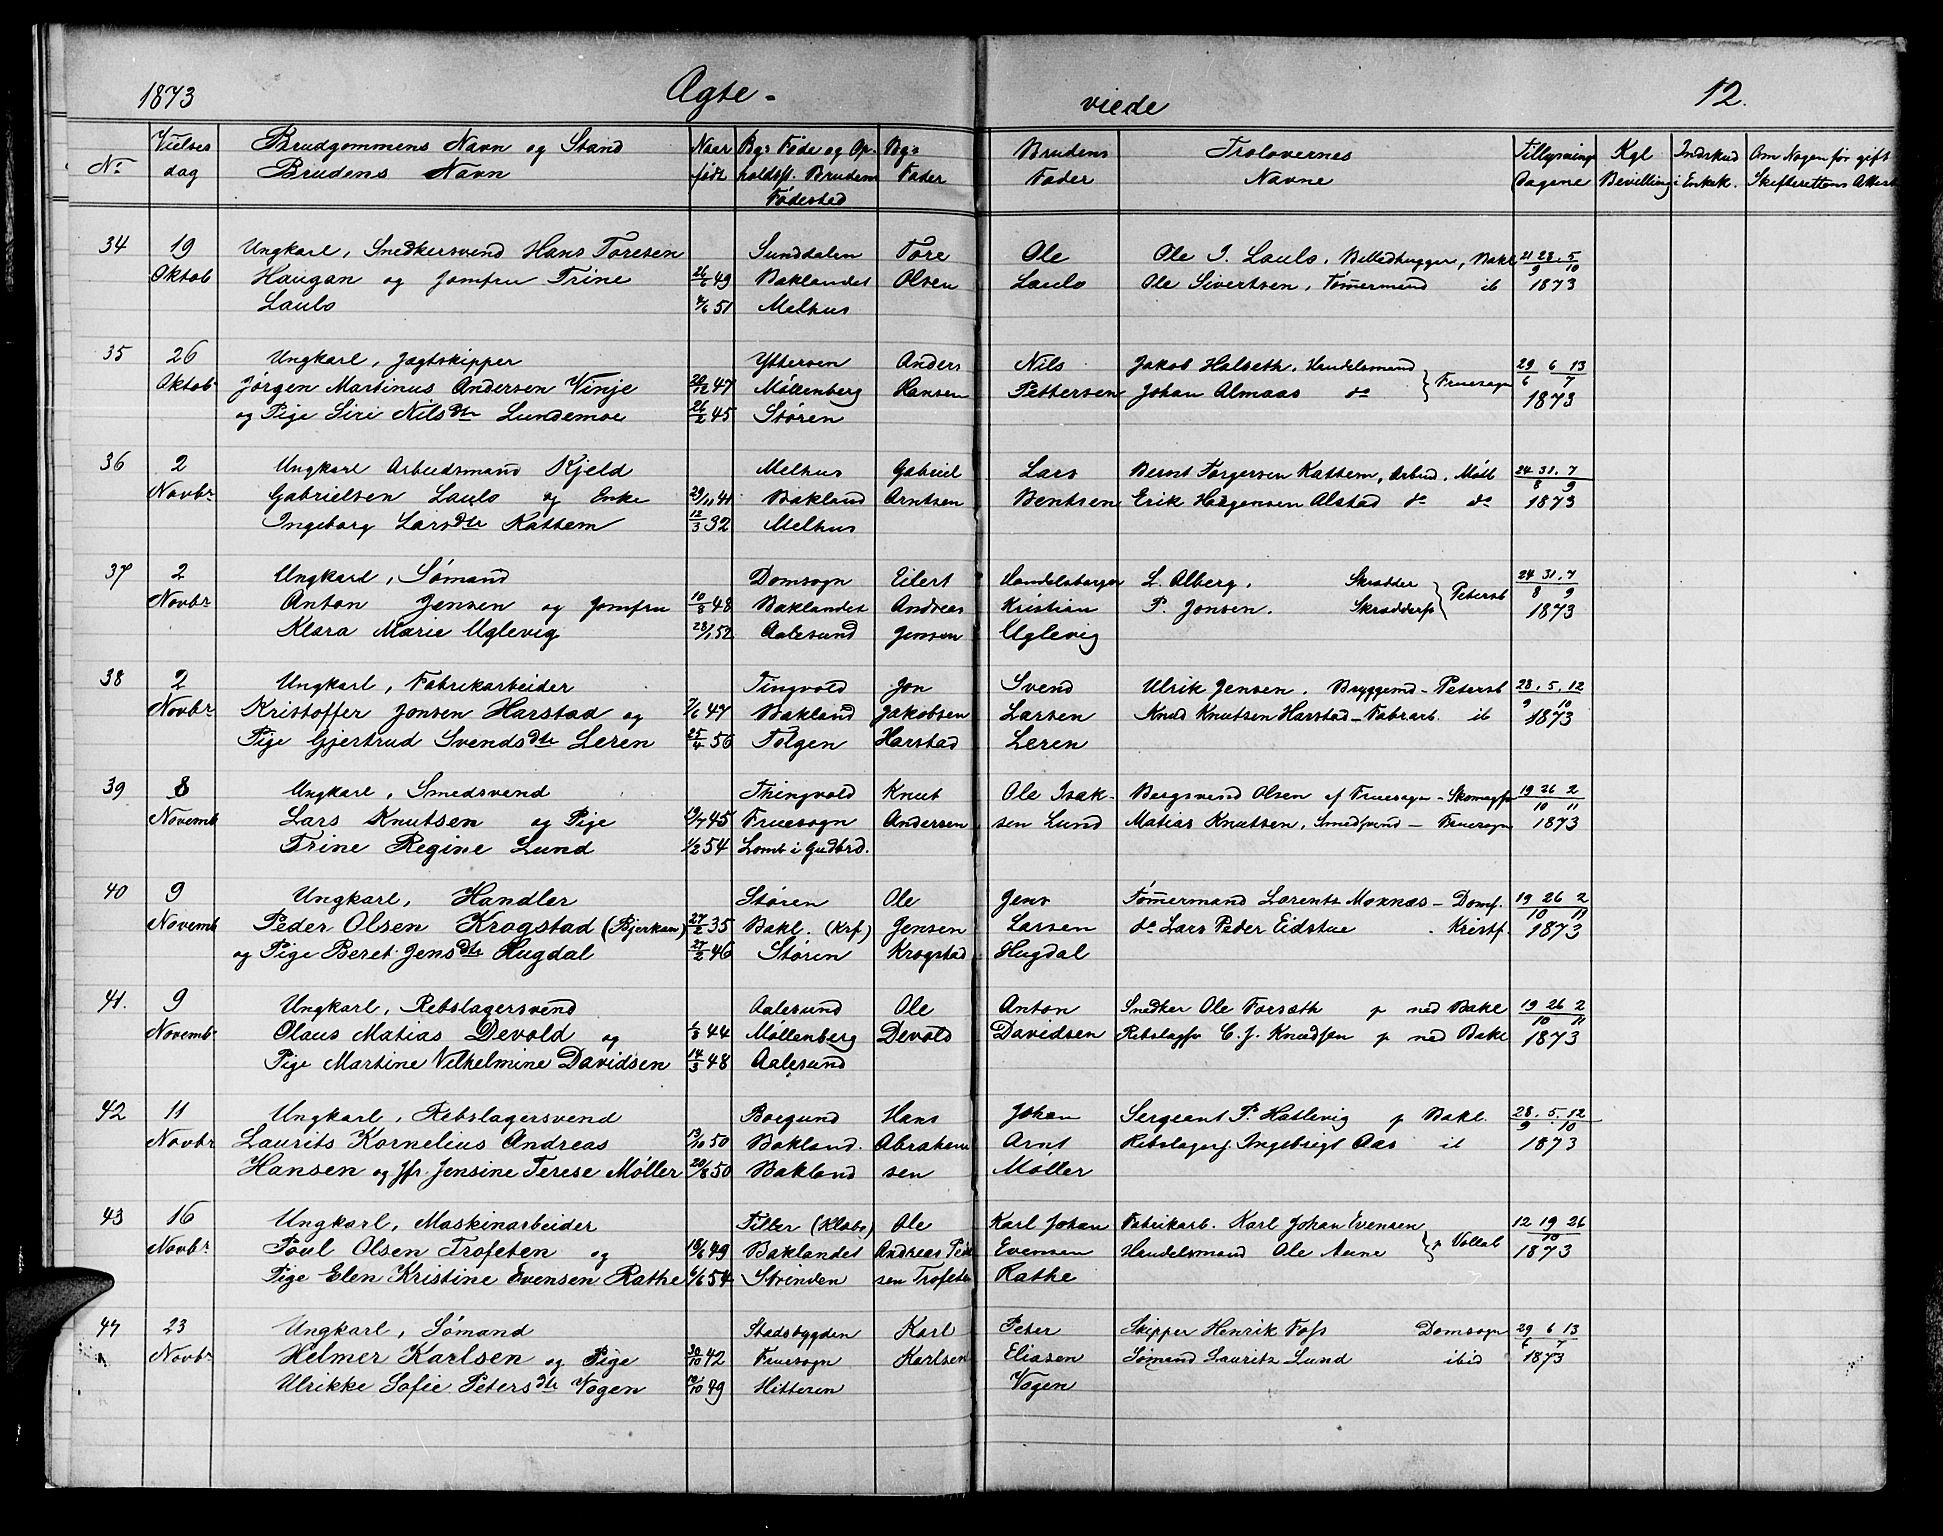 1873 Ægte- viede 12.
No Vielses dag Brudgommens Navn og Stand Brudens Navn Naar født Bgs Føde og Opholdsst. Brudens Fødested Bgs Fader Brudens Fader Trolovernes Navne Tillysnings Dagene Kgl Bevilling Indskud i Enkek. Om Nogen før gift Skifterettens Attest
34 19 Ungkarl, Snedkersvend Hans Toresen Sunddalen Tore Ole Ole I. Laulo, Billedhugger, Bakl 21 28. 5
Oktob Haugan og Jomfru Trine 26/6 49 Baklandet Olsen Laulo Ole Sivertsen, Tømermand ib 9 10 1873
Laulo 51 Melhus
35 26 Ungkarl, Jagtskipper Ytterøen Anders Nils Jakob Halseth, Handelsmand 29 6 13
Oktob Jørgen Martinus Andersen Vinje 20/12 47 Møllenberg Hansen Pettersen Johan Almaas do Fruesogn 6 7 1873
og Pige Siri Nilsdtr Lundemoe 26/2 45 Støren
36 2 Ungkarl Arbeidsmand Kjeld Melhus Gabriel Lars Bernt Torgersen Kattem, Arbeid. Møll 24 31. 7
Novbr Gabrielsen Laulo og Enke 29/11 41 Bakland Arntsen Bentsen Erik Haagensen Alstad do do 8 9 1873
Ingeborg Larsdtr Kattem 12/3 32 Melhus
37 2 Ungkarl, Sømand Domsogn Eilert Handelsborger L. Alberg, Skrædder 24 31. 7
Novbr Anton Jensen og Jomfru 10/8 48 Baklandet Andreas Kristian P. Jonsen. Petersb 8 9 1873
Klara Marie Uglevig 28/1 52 Aalesund Jensen Uglevig
38 2 Ungkarl, Fabrikarbeider Tingvold Jon Svend Ulrik Jensen. Bryggemd - Petersb 28. 5. 12
Novbr Kristoffer Jonsen Harstad og 47 Bakland Jakobsen Larsen Knud Knutsen Harstad - Fabrarb. ib 9 10 1873
Pige Gjertrud Svendsdtr Leren 25/4 56 Tolgen Harstad Leren
39 8 Ungkarl, Smedsvend Thingvold Knut Ole Isak- Bergsvend Olsen af Fruesogn - 19 26 2
Novemb Lars Knutsen og Pige 19/7 45 Fruesogn Andersen sen Lund Matias Knutsen, Smedsvend - Fruesogn 10 11 1873
Trine Regine Lund 1/2 54 Lomb i Gudbrd.
40 9 Ungkarl, Handler Støren Ole Jens Tømmermand Lorentz Moxnæs - Doms. 19 26 2
Novemb Peder Olsen Krogstad (Bjerkan) 27/2 35 Bakl. (Krf) Jensen Larsen do Lars Peder Eidstue . Kristf. 10 11 1873
og Pige Beret Jensdtr Hugdal 27/2 46 Støren Krogstad Hugdal
41. 9 Ungkarl, Rebslagersvend Aalesund Ole Anton Snedker Ole Forsæth p ned Bakl 19 26 2
Novemb Olaus Matias Devold og 44 Møllenberg Devold Davidsen Rebslagsv C. J. Knudsen p ned Bakl 10 11 1873
Pige Martine Vilhelmine Davidsen 14/3 48 Aalesund
42 11 Ungkarl, Rebslagersvend Borgund Hans Johan Sergeant P. Hatlevig p Bakl. 28. 5. 12
Novbr Laurits Kornelius Andreas 50 Bakland. Abraham Arnt Rebslagers Ingebrigt Aas ib 9 10 1873
Hansen og Jfr. Jensine Terese Møller 20/8 50 Bakland sen Møller
43 16 Ungkarl, Maskinarbeider Tiller (Klæbo) Ole Karl Johan Fabrikarb. Karl Johan Evensen 12 19 26
Novbr Povl Olsen Trofeten og 18/6 49 Baklandet Andreas Peder Evensen Handelsmand Ole Aune p Vollab 10 1873
Pige Elen Kristine Evensen Rathe 6/6 54 Strinden sen Trofeten Rathe
44 23 Ungkarl, Sømand Stadsbygden Karl Peter Skipper Henrik Foss Domsogn 29 6 13
Novbr Helmer Karlsen og Pige 30/10 42 Fruesogn Karlsen Eliasen Sømand Lauritz Lund ibid 6 7 1873
Ulrikke Sofie Petersdtr Vogen 49 Hitteren Vogen